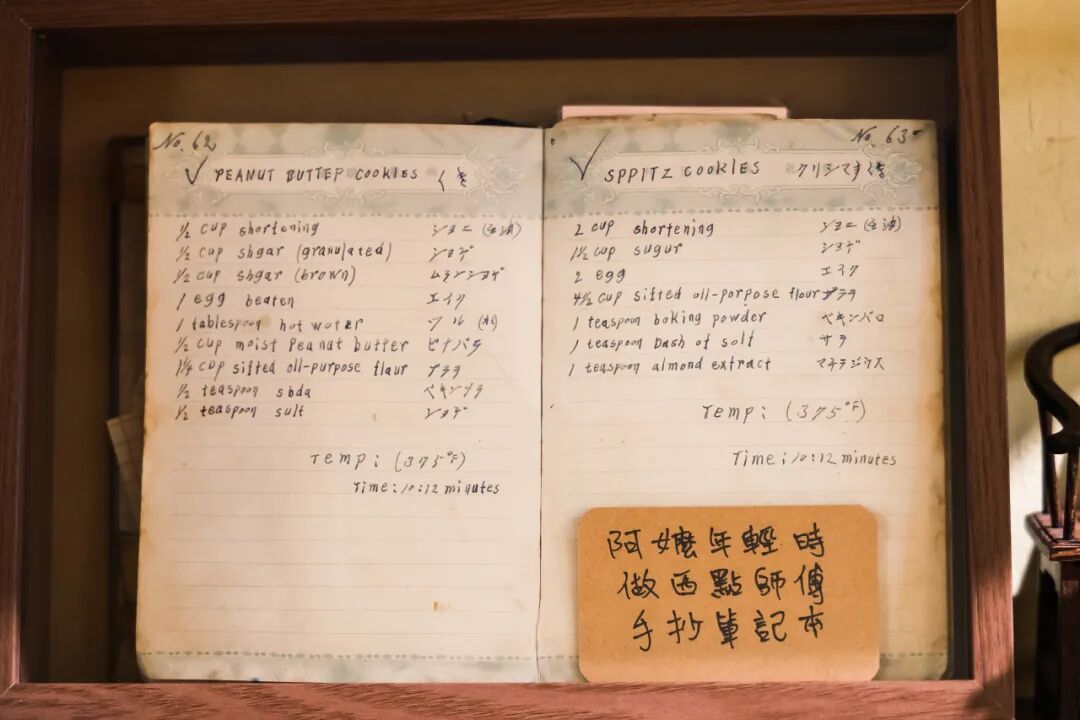 No. 62
✓ PEANUT BUTTEP COOKIES くき
½ cup shortening ショニ
½ cup shgar (granulated) ショデ
½ cup shgar (brown)
1 egg beaten エイク
1 tablespoon hot water (水)
½ cup moist Peanut butter ピナバタ
1¼ cup sifted all-purpose flaur
½ teaspoon sbda ベキンソラ
½ teaspoon sult ショデ
Temp: (375°F)
Time: 10:12 minutes
No. 63
✓ SPPITZ COOKIES クリシマすくき
2 cup shortening ショニ
1½ cup sugur ショデ
2 egg エイク
4½ cup sifted all-porpose flour
1 teaspoon boking powder ベキンパロ
1 teaspoon Dash of salt サラ
1 teaspoon almond extract
Temp: (375°F)
Time: 10:12 minutes
阿嬤年輕時
做西點師傅
手抄筆記本